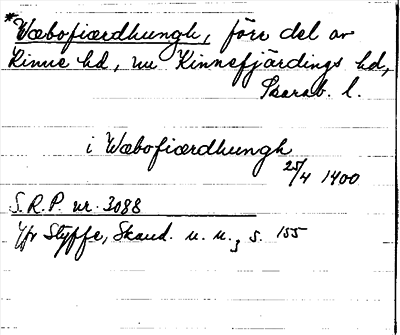 *Wæbofiærdhungh, förr del av
Kinne hd, nu Kinnefjärdings hd,
Skarab. l.
i Wæbofiærdhungh
25/4 1400
S.R.P. nr. 3088
Jfr Styffe, Skand. u. u., s. 155